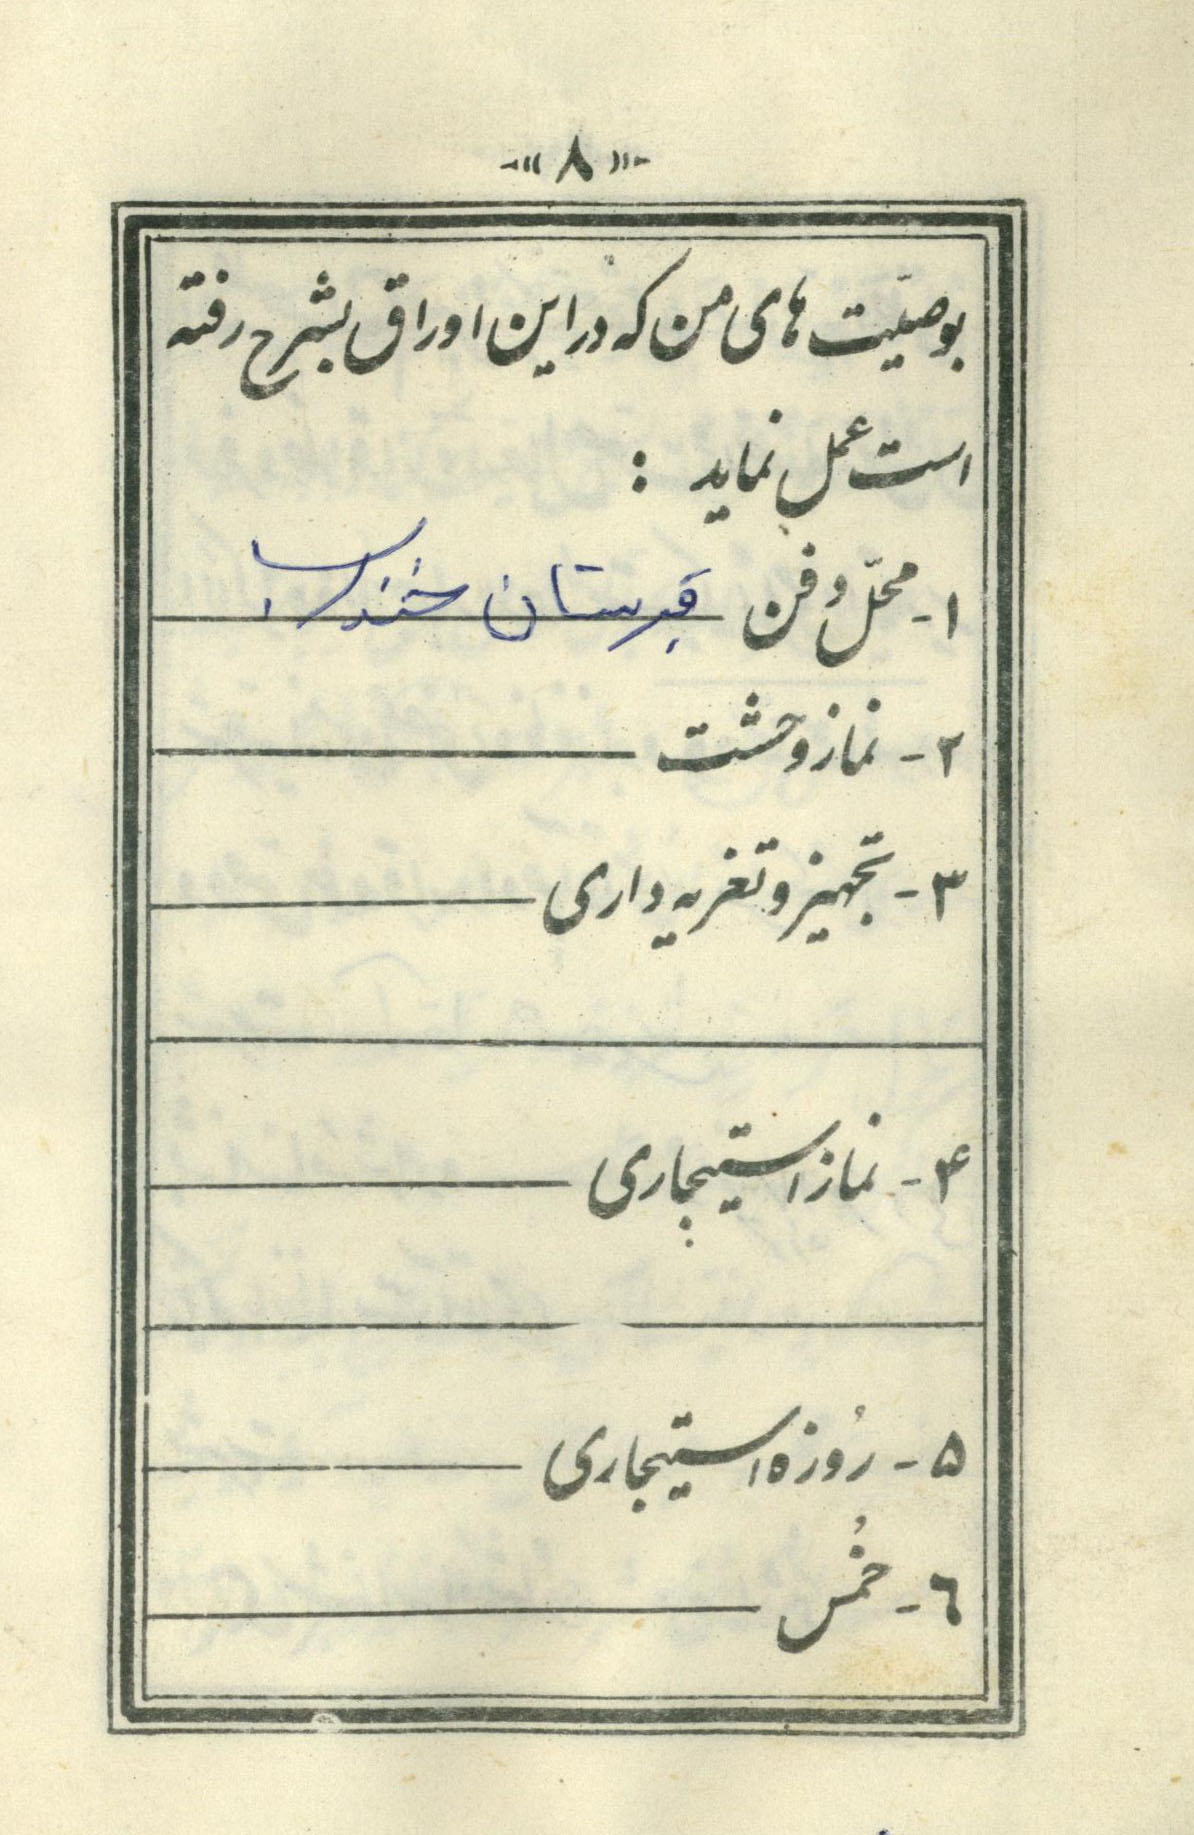 ۸
بوصیّت های من که در این اوراق بشرح رفته
است عمل نماید :
۱- محلّ دفن قبرستان
۲- نماز وحشت
۳- تجهیز و تعزیه داری
۴- نماز استیجاری
۵- رُوزه استیجاری
٦- خُمس